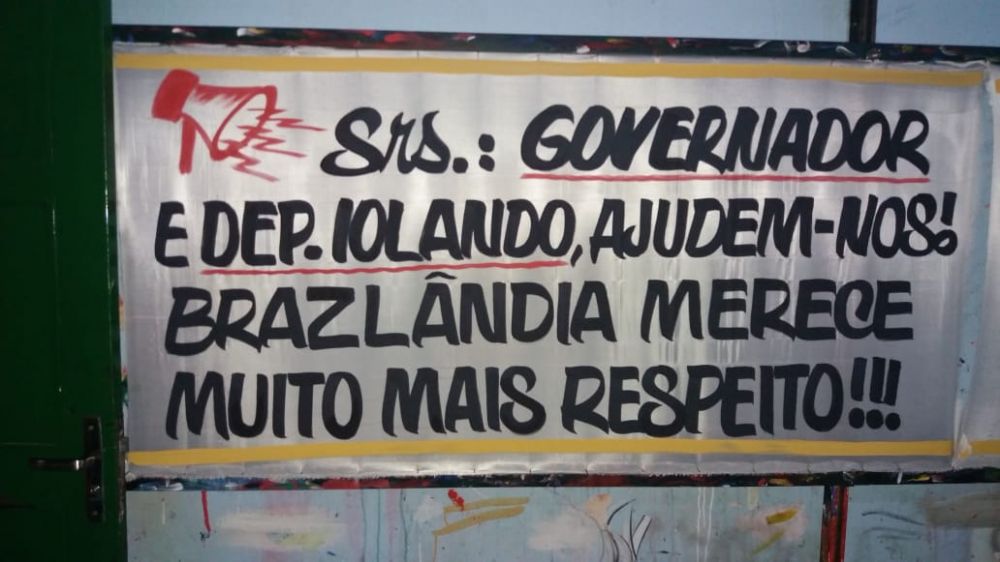 Srs.: GOVERNADOR
E DEP. IOLANDO, AJUDEM-NOS!
BRAZLÂNDIA MERECE
MUITO MAIS RESPEITO!!!